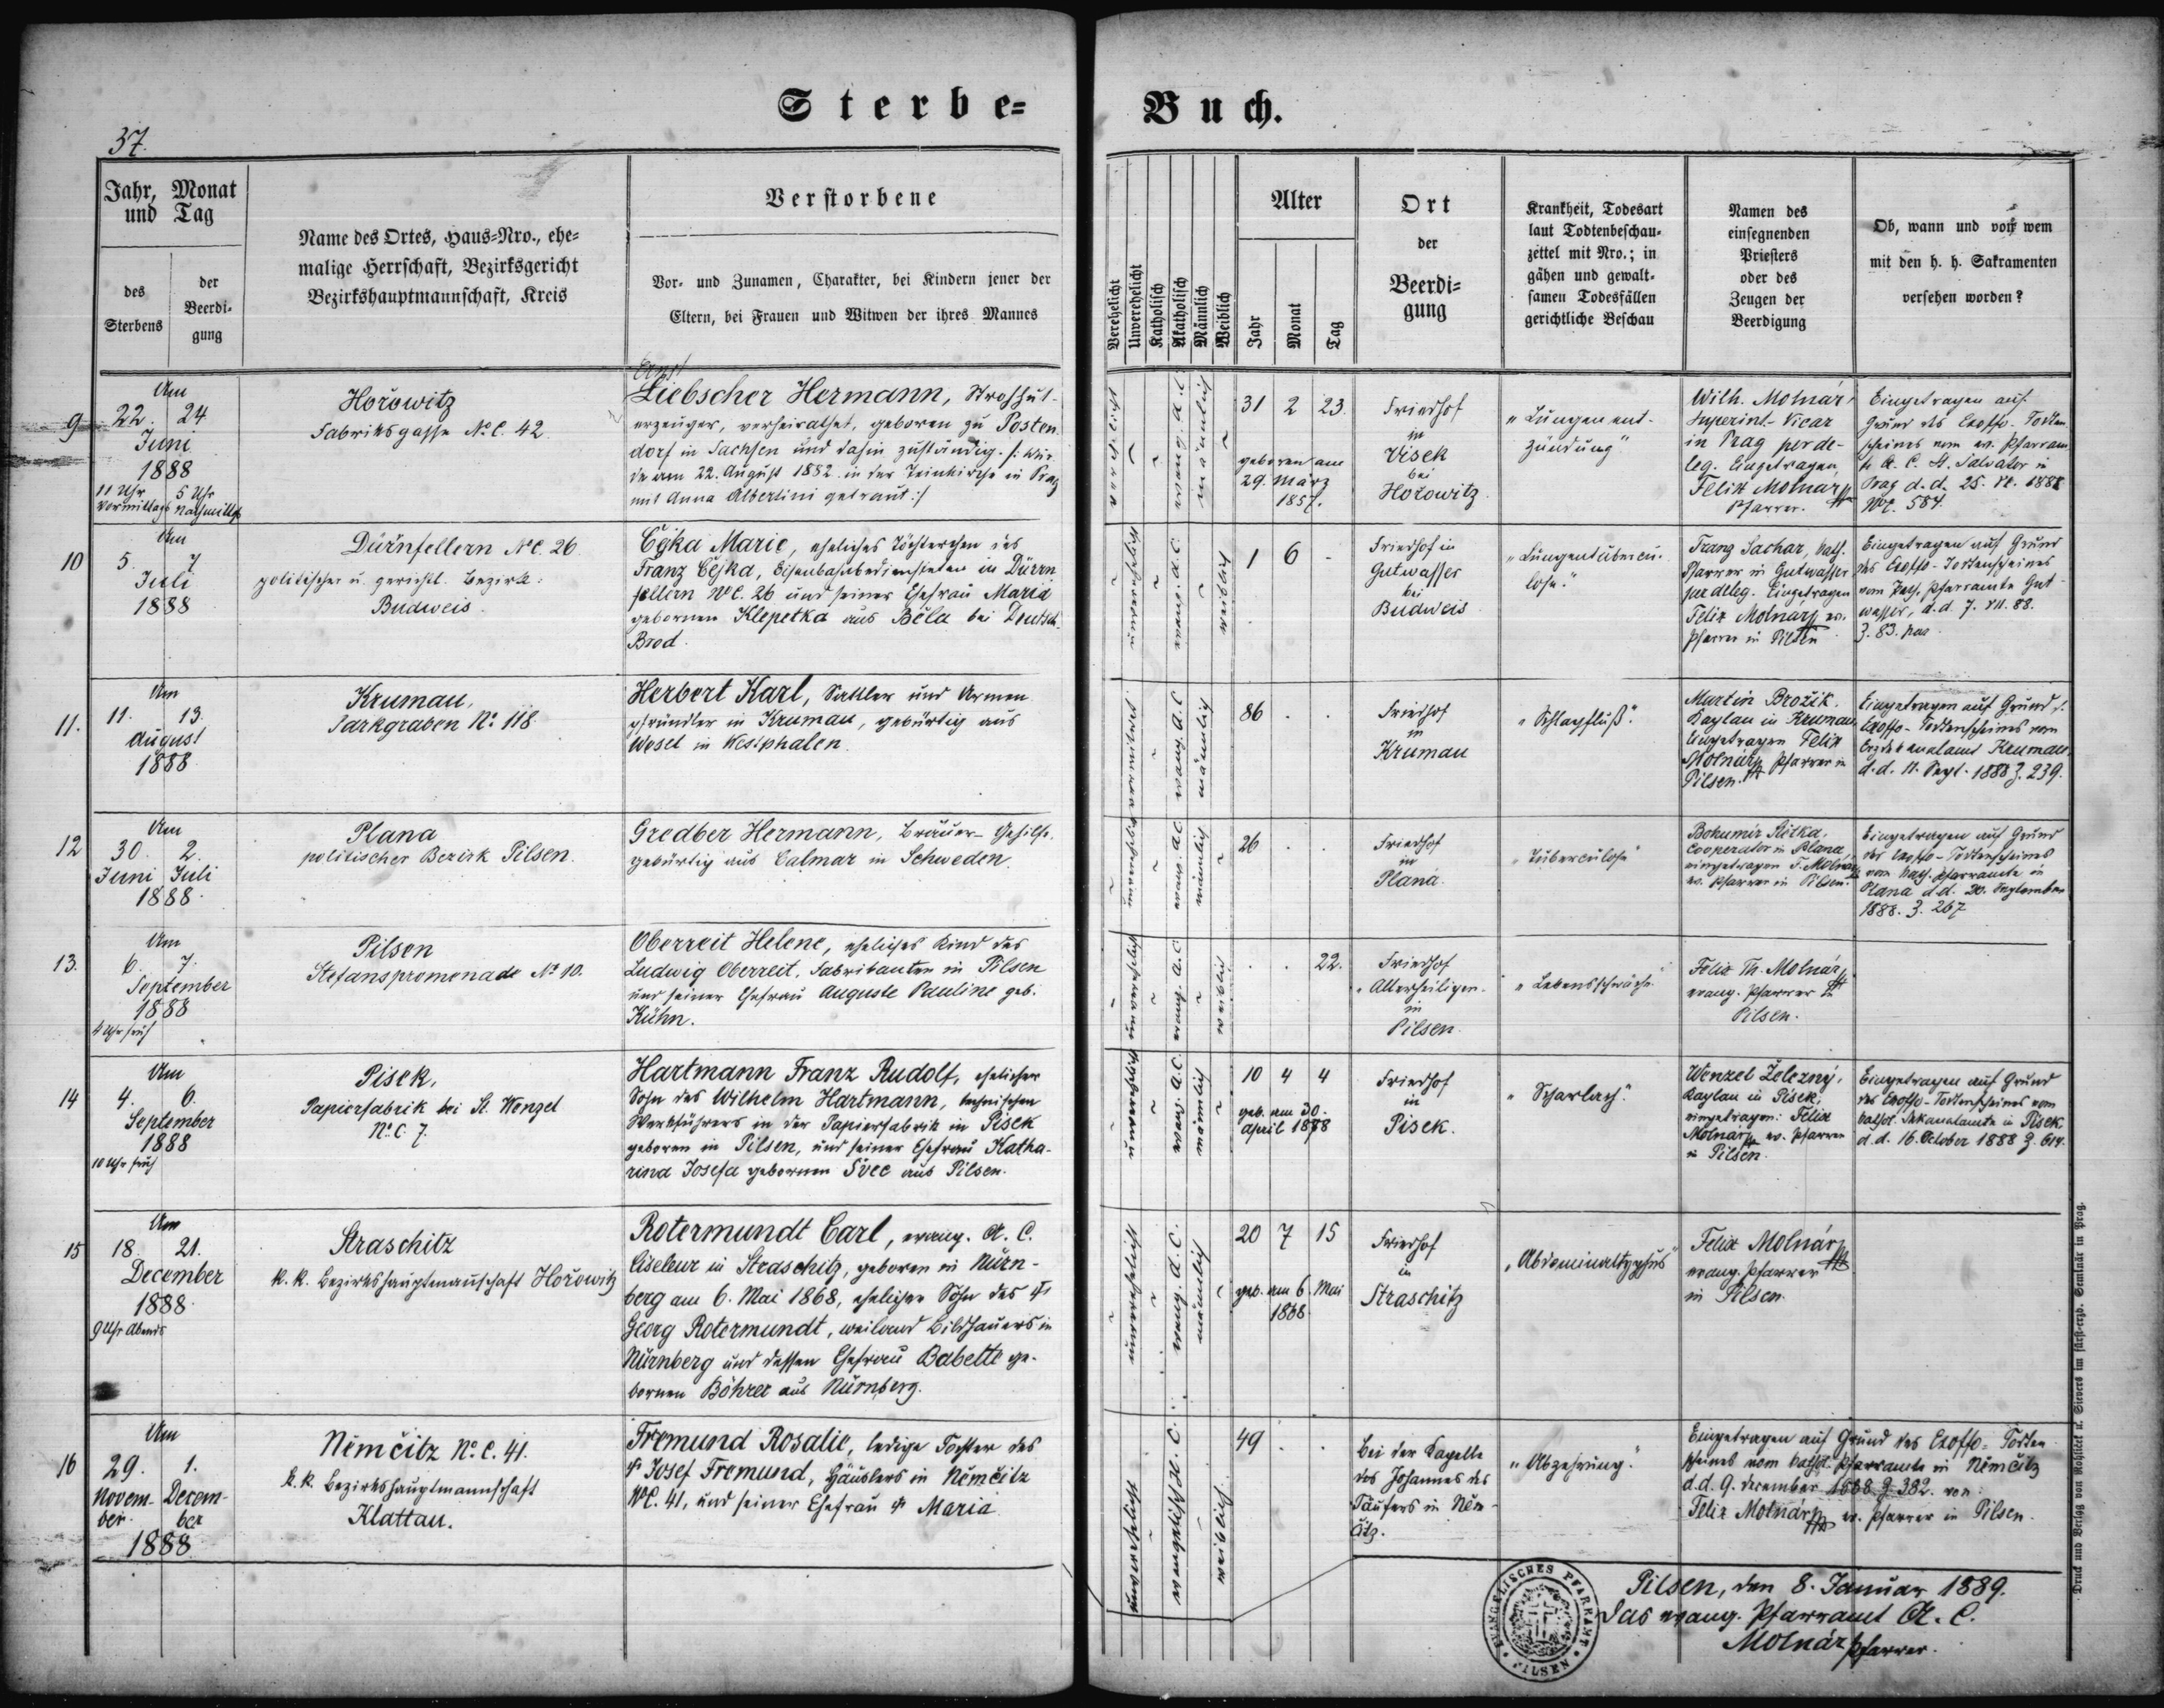 Sterbe=
Buch.
37.
Jahr, Monat
und Tag
des
Sterbens
der
Beerdi-
gung
Name des Ortes, Haus-Nro., ehe-
malige Herrschaft, Bezirksgericht
Bezirkshauptmannschaft, Kreis
Verstorbene
Vor- und Zunamen, Charakter, bei Kindern jener der
Eltern, bei Frauen und Witwen der ihres Mannes
Verehelicht
Unverehelicht
Katholisch
Akatholisch
Männlich
Weiblich
Alter
Jahr
Monat
Tag
Ort
der
Beerdi-
gung
Krankheit, Todesart
laut Todtenbeschau-
zettel mit Nro.; in
gähen und gewalt-
samen Todesfällen
gerichtliche Beschau
Namen des
einsegnenden
Priesters
oder des
Zeugen der
Beerdigung
Ob, wann und von wem
mit den h. h. Sakramenten
versehen worden?
9
Am
22. 24
Juni
1888
11 Uhr
Vormittags
5 Uhr
Nachmittg
Hořowitz
Fabriksgasse No. C. 42
Ernst
Liebscher Hermann, Strohhut-
erzeuger, verheirathet, geboren zu Posten
dorf in Sachsen und dahin zuständig. /: Wur-
de am 22. August 1882 in der Teinkirche in Prag
mit Anna Albertini getraut :/
evang. A. C.
männlich
31 2 23.
geboren am
29. März
1857.
Friedhof
in
Visek
bei
Hořowitz
"Lungenent-
zündung"
Wilh. Molnár,
Superint. Vicar
in Prag per de-
leg. Eingetragen
Felix Molnár
Pfarrer.
Eingetragen auf
Grund des Exoffo-Todten
scheines vom ev. Pfarram
te A. C. St. Salvator in
Prag d. d. 25. VI. 1888
No. 584.
10
Am
5. 7
Juli
1888
Dürnfellern No. C. 26
politischer u. gerichtl. Bezirk:
Budweis
Čejka Marie, eheliches Töchterchen des
Franz Čejka, Eisenbahnbediensteten in Dürrn
fellern No. C. 26 und seiner Ehefrau Maria
gebornen Klepetka aus Běla bei Deutsch
Brod.
unverehelicht
evang. A. C.
weiblich
1 6 -
Friedhof in
Gutwasser
bei
Budweis
"Lungentubercu-
lose."
Franz Sachar, kath.
Pfarrer in Gutwasser
per deleg. Eingetragen
Felix Molnár ev.
Pfarrer in Pilsen
Eingetragen auf Grund
des Exoffo-Todtenscheines
vom kath. Pfarramte Gut-
wasser, d. d. 7. VII. 88.
Z. 83.
11.
Am
11. 13.
August
1888
Krumau,
Parkgraben No. 118.
Herbert Karl, Sattler und Armen
pfründler in Krumau, gebürtig aus
Wesel in Westphalen.
evang. A. C.
männlich
86 . .
Friedhof
in
Krumau
"Schlagfluß".
Martin Brožik,
Kaplan in Krumau,
Eingetragen Felix
Molnár, Pfarrer in
Pilsen.
Eingetragen auf Grund d.
Exoffo-Todtenscheines vom
Erzdekanalamt Krumau
d. d. 11. Sept. 1888 Z. 239.
12
Am
30. 2.
Juni Juli
1888.
Plana
politischer Bezirk Pilsen.
Gredber Hermann, Bräuer-Gehilfe,
gebürtig aus Calmar in Schweden.
evang. A. C.
männlich
26 . .
Friedhof
in
Plana.
"Tuberculose"
Cooperator in Plana,
eingetragen F. Molnár
ev. Pfarrer in Pilsen.
Eingetragen auf Grund
des Exoffo-Todtenscheines
vom kath. Pfarramte in
Plana d. d. 20. September
1888. Z. 267
13.
Am
6. 7.
September
1888
4 Uhr früh
Pilsen
Stefanspromenade No. 10.
Oberreit Helene, eheliches Kind des
Ludwig Oberreit, Fabrikanten in Pilsen
und seiner Ehefrau Auguste Pauline geb.
Kühn.
unverehelicht
evang. A. C.
weiblich
. . 22.
Friedhof
"Allerheiligen"
in
Pilsen.
"Lebensschwäche"
Felix Th. Molnár
evang. Pfarrer in
Pilsen.
14
Am
4. 6.
September
1888
10 Uhr früh
Pisek,
Papierfabrik bei St. Wenzel
No. C. 7.
Hartmann Franz Rudolf, ehelicher
Sohn des Wilhelm Hartmann, technischen
Werkführers in der Papierfabrik in Pisek
geboren in Pilsen, und seiner Ehefrau Katha-
rina Josefa gebornen Švec aus Pilsen.
unverehelicht
evang. A. C.
männlich
10 4 4
geb. am 30.
April 1878
Friedhof
in
Pisek.
"Scharlach".
Wenzel Železný,
Kaplan in Pisek,
eingetragen: Felix
Molnár ev. Pfarrer
in Pilsen.
Eingetragen auf Grund
des Exoffo-Todtenscheines vom
kathol. Dekanalamte in Pisek,
d. d. 16. October 1888 Z. 614.
15
Am
18. 21.
December
1888.
9 Uhr Abends
Straschitz
k. k. Bezirkshauptmanschaft Hořowitz
Rotermundt Carl, evang. A. C.
Ciseleur in Straschitz, geboren in Nürn-
berg am 6. Mai 1868, ehelicher Sohn des †
Georg Rotermundt, weiland Bildhauers in
Nürnberg und dessen Ehefrau Babette ge-
bornen Böhrer aus Nürnberg.
unverehelicht
evang. A. C.
männlich
20 7 15
geb. am 6. Mai
1868.
Friedhof
in
Straschitz
"Abdominaltyphus"
Felix Molnár
evang. Pfarrer
in Pilsen.
16
Am
29. 1.
Novem-
ber
Decem-
ber
1888
Němčitz No. C. 41.
k. k. Bezirkshauptmannschaft
Klattau.
Fremund Rosalie, ledige Tochter des
† Josef Fremund, Häuslers in Němčitz
No C. 41, und seiner Ehefrau † Maria
unverehelicht
evangelisch H. C.
weiblich.
49 . .
Bei der Kapelle
des Johannes des
Täufers in Něm-
čitz.
"Abzehrung".
Eingetragen auf Grund des Exoffo-Todten
scheines vom kathol. Pfarramte in Němčitz
d. d. 9. December 1888 Z. 382. von:
Felix Molnár ev. Pfarrer in Pilsen.
Pilsen, den 8. Januar 1889.
Das evang. Pfarramt A. C.
Molnár Pfarrer.
EVANGELISCHES PFARRAMT
PILSEN
Druck und Verlag von Rohliček u. Sievers im fürst-erzb. Seminär in Prag.